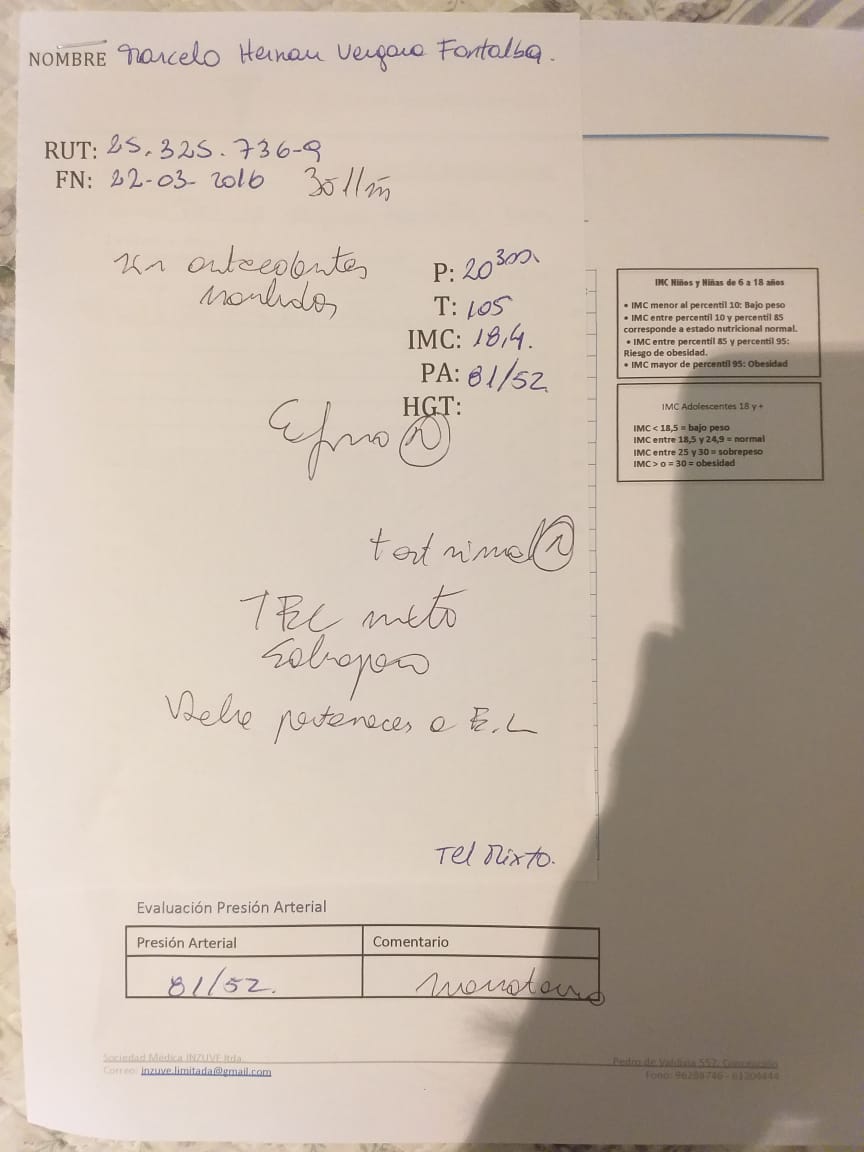 NOMBRE Marcelo Hernan Vergara Fontalba.
RUT: 25.325.736-9
FN: 22-03-2016 3a 11m
sin antecedentes
morbidos
P: 20300
T: 105
IMC: 18,4.
PA: 81/52
HGT:
Efisico N
test visual N
TEL mixto
Sobrepeso
Debe pertenecer a E.L
Tel Mixto.
IMC Niños y Niñas de 6 a 18 años
• IMC menor al percentil 10: Bajo peso
• IMC entre percentil 10 y percentil 85
corresponde a estado nutricional normal.
• IMC entre percentil 85 y percentil 95:
Riesgo de obesidad.
• IMC mayor de percentil 95: Obesidad
IMC Adolescentes 18 y +
IMC < 18,5 = bajo peso
IMC entre 18,5 y 24,9 = normal
IMC entre 25 y 30 = sobrepeso
IMC > o = 30 = obesidad
Evaluación Presión Arterial
Presión Arterial Comentario
81/52. Normotenso
Sociedad Médica INZUVE ltda.
Correo: inzuve.limitada@gmail.com
Pedro de Valdivia 552, Concepción
Fono: